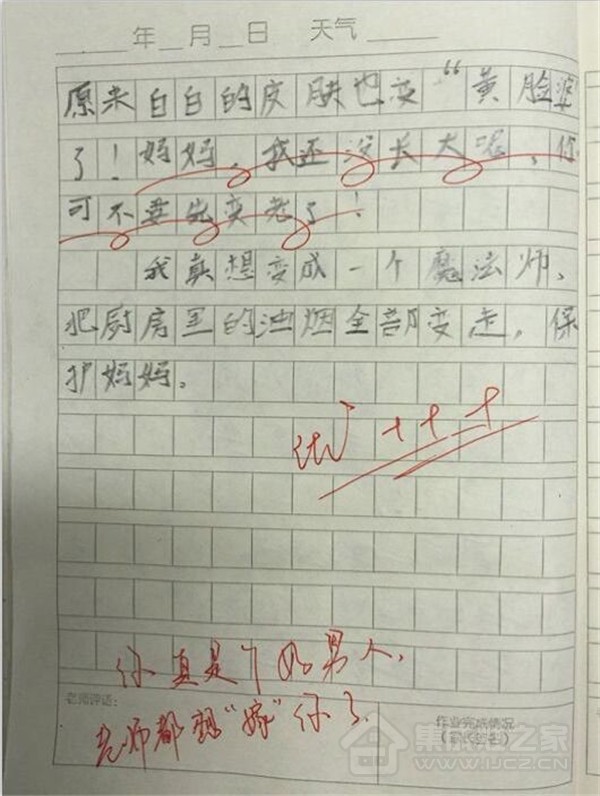 年 月 日 天气
原来白白的皮肤也变“黄脸婆”
了！妈妈，我还没长大呢，你
可不要先变老了！
我真想变成一个魔法师，
把厨房里的浊烟全部变走，保
护妈妈。
优+++
你真是个好男人，
老师评语：
老师都想“嫁”你了
作业完成情况
（家长签名）
集成灶之家
WWW.IJCZ.CN